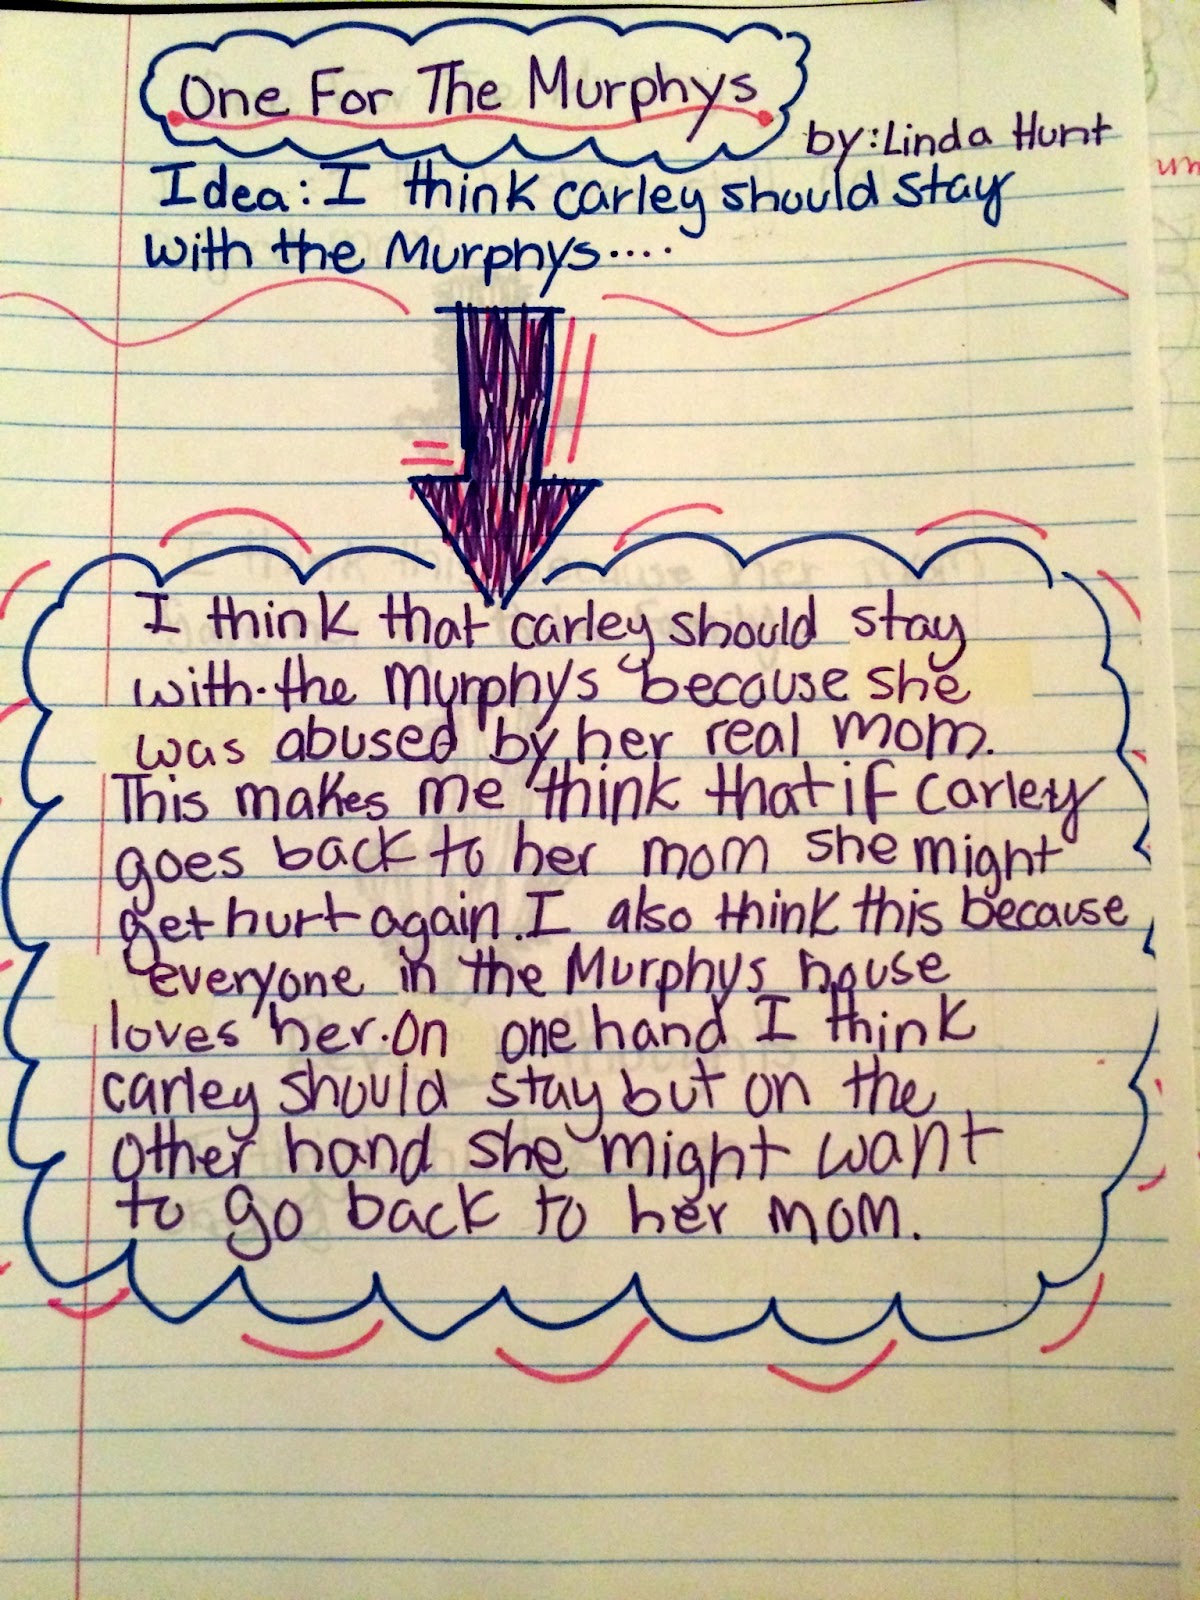 One For The Murphys
by: Linda Hunt
Idea: I think carley should stay
with the Murphys....
I think that carley should stay
with the Murphys because she
was abused by her real mom.
This makes me think that if carley
goes back to her mom she might
get hurt again. I also think this because
everyone in the Murphys house
loves her. On one hand I think
carley should stay but on the
other hand she might want
to go back to her mom.